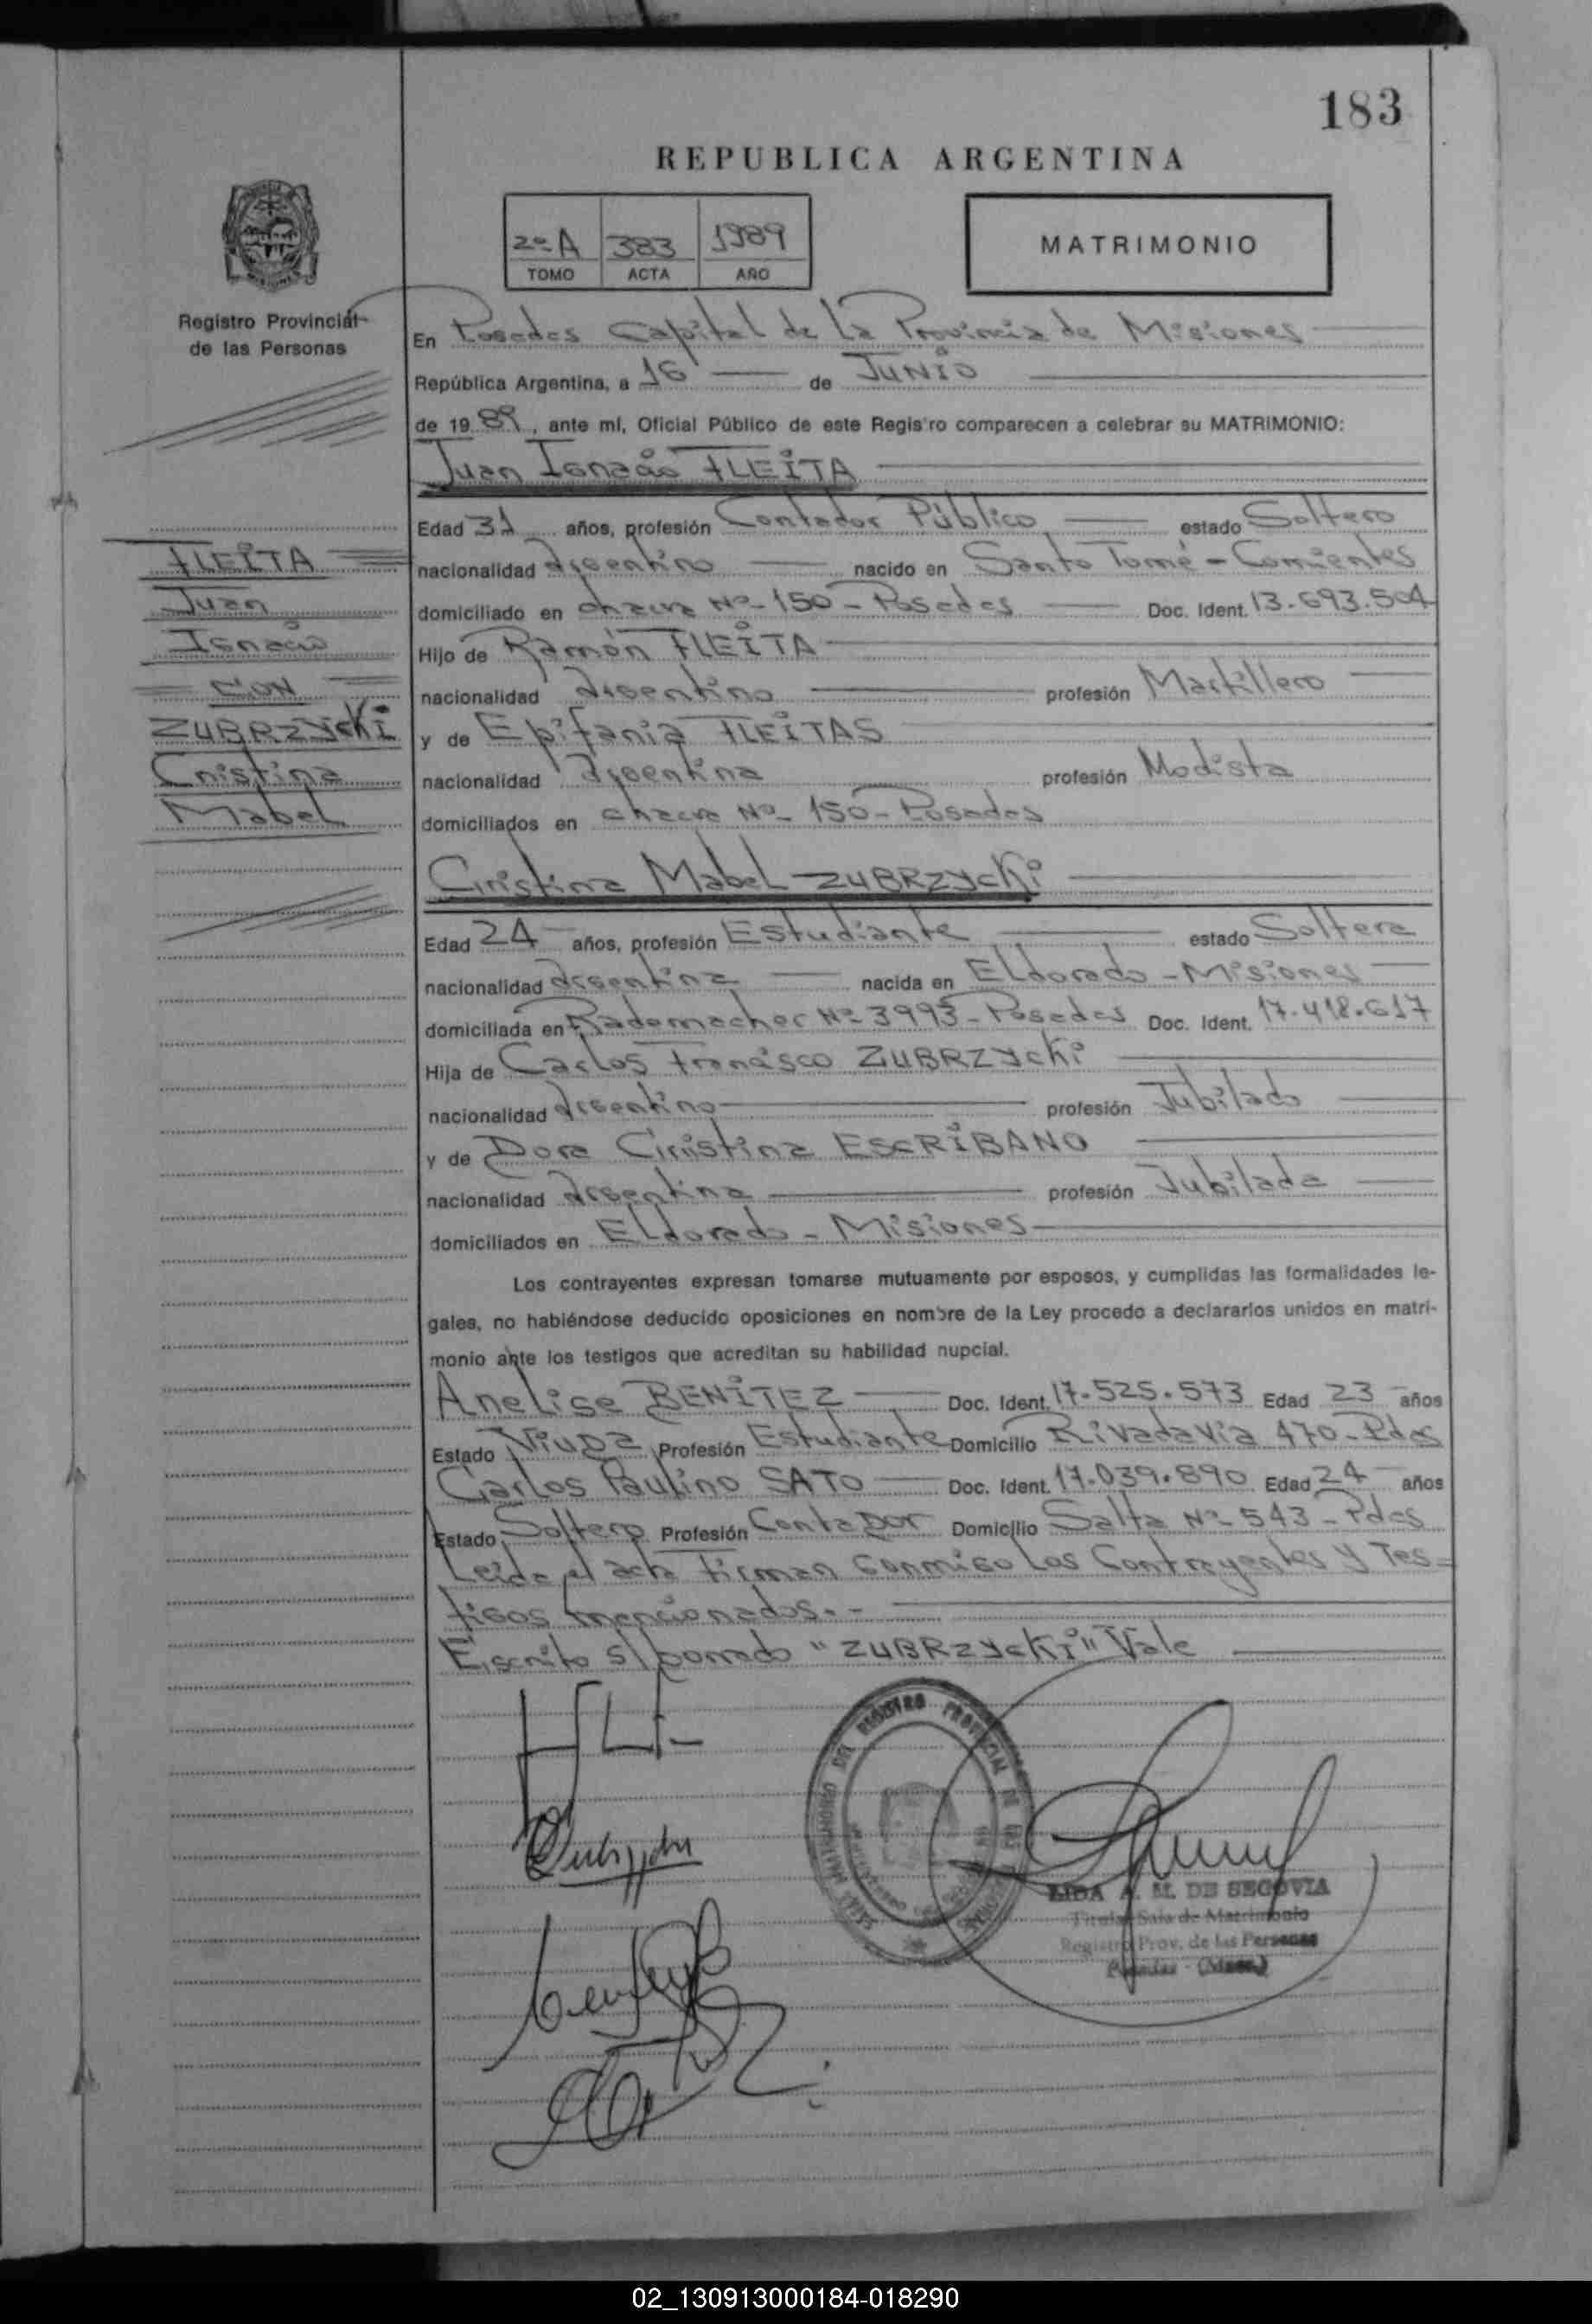 183
REPUBLICA ARGENTINA
2º A 383 1989
TOMO ACTA AÑO
MATRIMONIO
Registro Provincial
de las Personas
En Posadas Capital de la Provincia de Misiones
República Argentina, a 16 de JUNIO
de 1989, ante mí, Oficial Público de este Regis'ro comparecen a celebrar su MATRIMONIO:
Juan Ignacio FLEITA
Edad 31 años, profesión Contador Público estado Soltero
nacionalidad Argentino nacido en Santo Tomé - Corrientes
domiciliado en chacra Nº 150 - Posadas Doc. Ident. 13.693.504
Hijo de Ramón FLEITA
nacionalidad Argentino profesión Martillero
y de Epifania FLEITAS
nacionalidad Argentina profesión Modista
domiciliados en chacra Nº 150 - Posadas
FLEITA
Juan
Ignacio
CON
ZUBRZYCKI
Cristina
Mabel
Cristina Mabel ZUBRZYCKI
Edad 24 años, profesión Estudiante estado Soltera
nacionalidad Argentina nacida en Eldorado - Misiones
domiciliada en Rademacher Nº 3993 - Posadas Doc. Ident. 17.418.617
Hija de Carlos Francisco ZUBRZYCKI
nacionalidad Argentino profesión Jubilado
y de Dora Cristina ESCRIBANO
nacionalidad Argentina profesión Jubilada
domiciliados en Eldorado - Misiones
Los contrayentes expresan tomarse mutuamente por esposos, y cumplidas las formalidades le-
gales, no habiéndose deducido oposiciones en nombre de la Ley procedo a declararlos unidos en matri-
monio ante los testigos que acreditan su habilidad nupcial.
Anelise BENITEZ Doc. Ident. 17.525.573 Edad 23 años
Estado Viuda Profesión Estudiante Domicilio Rivadavia 470 - Pdas
Carlos Paulino SATO Doc. Ident. 17.039.890 Edad 24 años
Estado Soltero Profesión Contador Domicilio Salta Nº 543 - Pdas
Leida el acta firman conmigo los Contrayentes y Tes-
tigos mencionados.-
Escrito s/borrado "ZUBRZYCKI" Vale
LIDA A. M. DE SEGOVIA
Titular Sala de Matrimonio
Registro Prov. de las Personas
Posadas - (Mnes.)
02_130913000184-018290